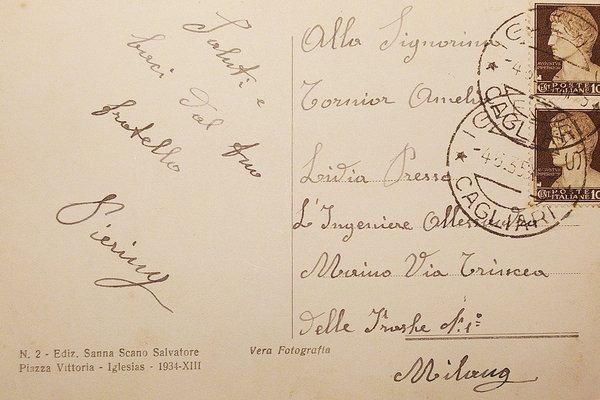 Saluti e
baci dal tuo
fratello
Pierino
N. 2 - Ediz. Sanna Scano Salvatore
Piazza Vittoria - Iglesias - 1934-XIII
Vera Fotografia
Alla Signorina
Tornior Amelia
Lidia Presso
L'Ingeniere
Marino Via Trincea
delle Frashe N. 1º
Milano
POSTE
ITALIANE 10
CAGLIARI
POSTE
ITALIANE 10
4.6.35
CAGLIARI